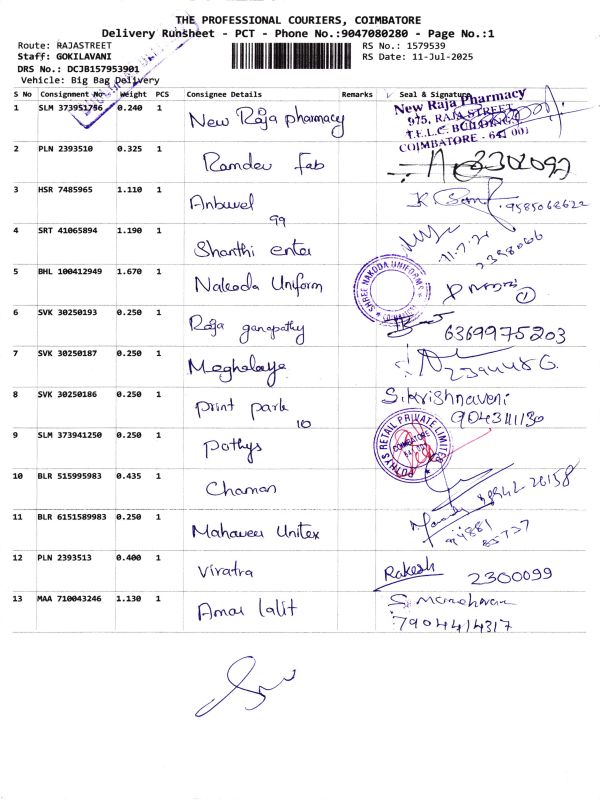 THE PROFESSIONAL COURIERS, COIMBATORE
Delivery Runsheet - PCT - Phone No.:9047080280 - Page No.:1
Route: RAJASTREET RS No.: 1579539
Staff: GOKILAVANI RS Date: 11-Jul-2025
DRS No.: DCJB157953901
Vehicle: Big Bag Delivery
S No Consignment No Weight PCS Consignee Details Remarks Seal & Signature
1 SLM 373951756 0.240 1 New Raja pharmacy
New Raja Pharmacy
975, RAJA STREET
T.E.L.C. BUILDING
COIMBATORE - 641 001
2 PLN 2393510 0.325 1 Ramdev Fab 2302092
3 HSR 7485965 1.110 1 Anbuvel 9585062622
99
4 SRT 41065894 1.190 1 Shanthi enter
5 BHL 100412949 1.670 1 Nakoda Uniform
SHREE NAKODA UNIFORMS
1
6 SVK 30250193 0.250 1 Raja ganapathy 6369975203
7 SVK 30250187 0.250 1 Meghalaya
8 SVK 30250186 0.250 1 print park S.krishnaveni
10 9043111130
9 SLM 373941250 0.250 1 pothys
POTHYS RETAIL PRIVATE LIMITED
COIMBATORE
10 BLR 515995983 0.435 1 Chaman
11 BLR 6151589983 0.250 1 Mahaveer Unitex
94881
85737
12 PLN 2393513 0.400 1 Viratra Rakesh 2300099
13 MAA 710043246 1.130 1 Amar lalit
7904414317